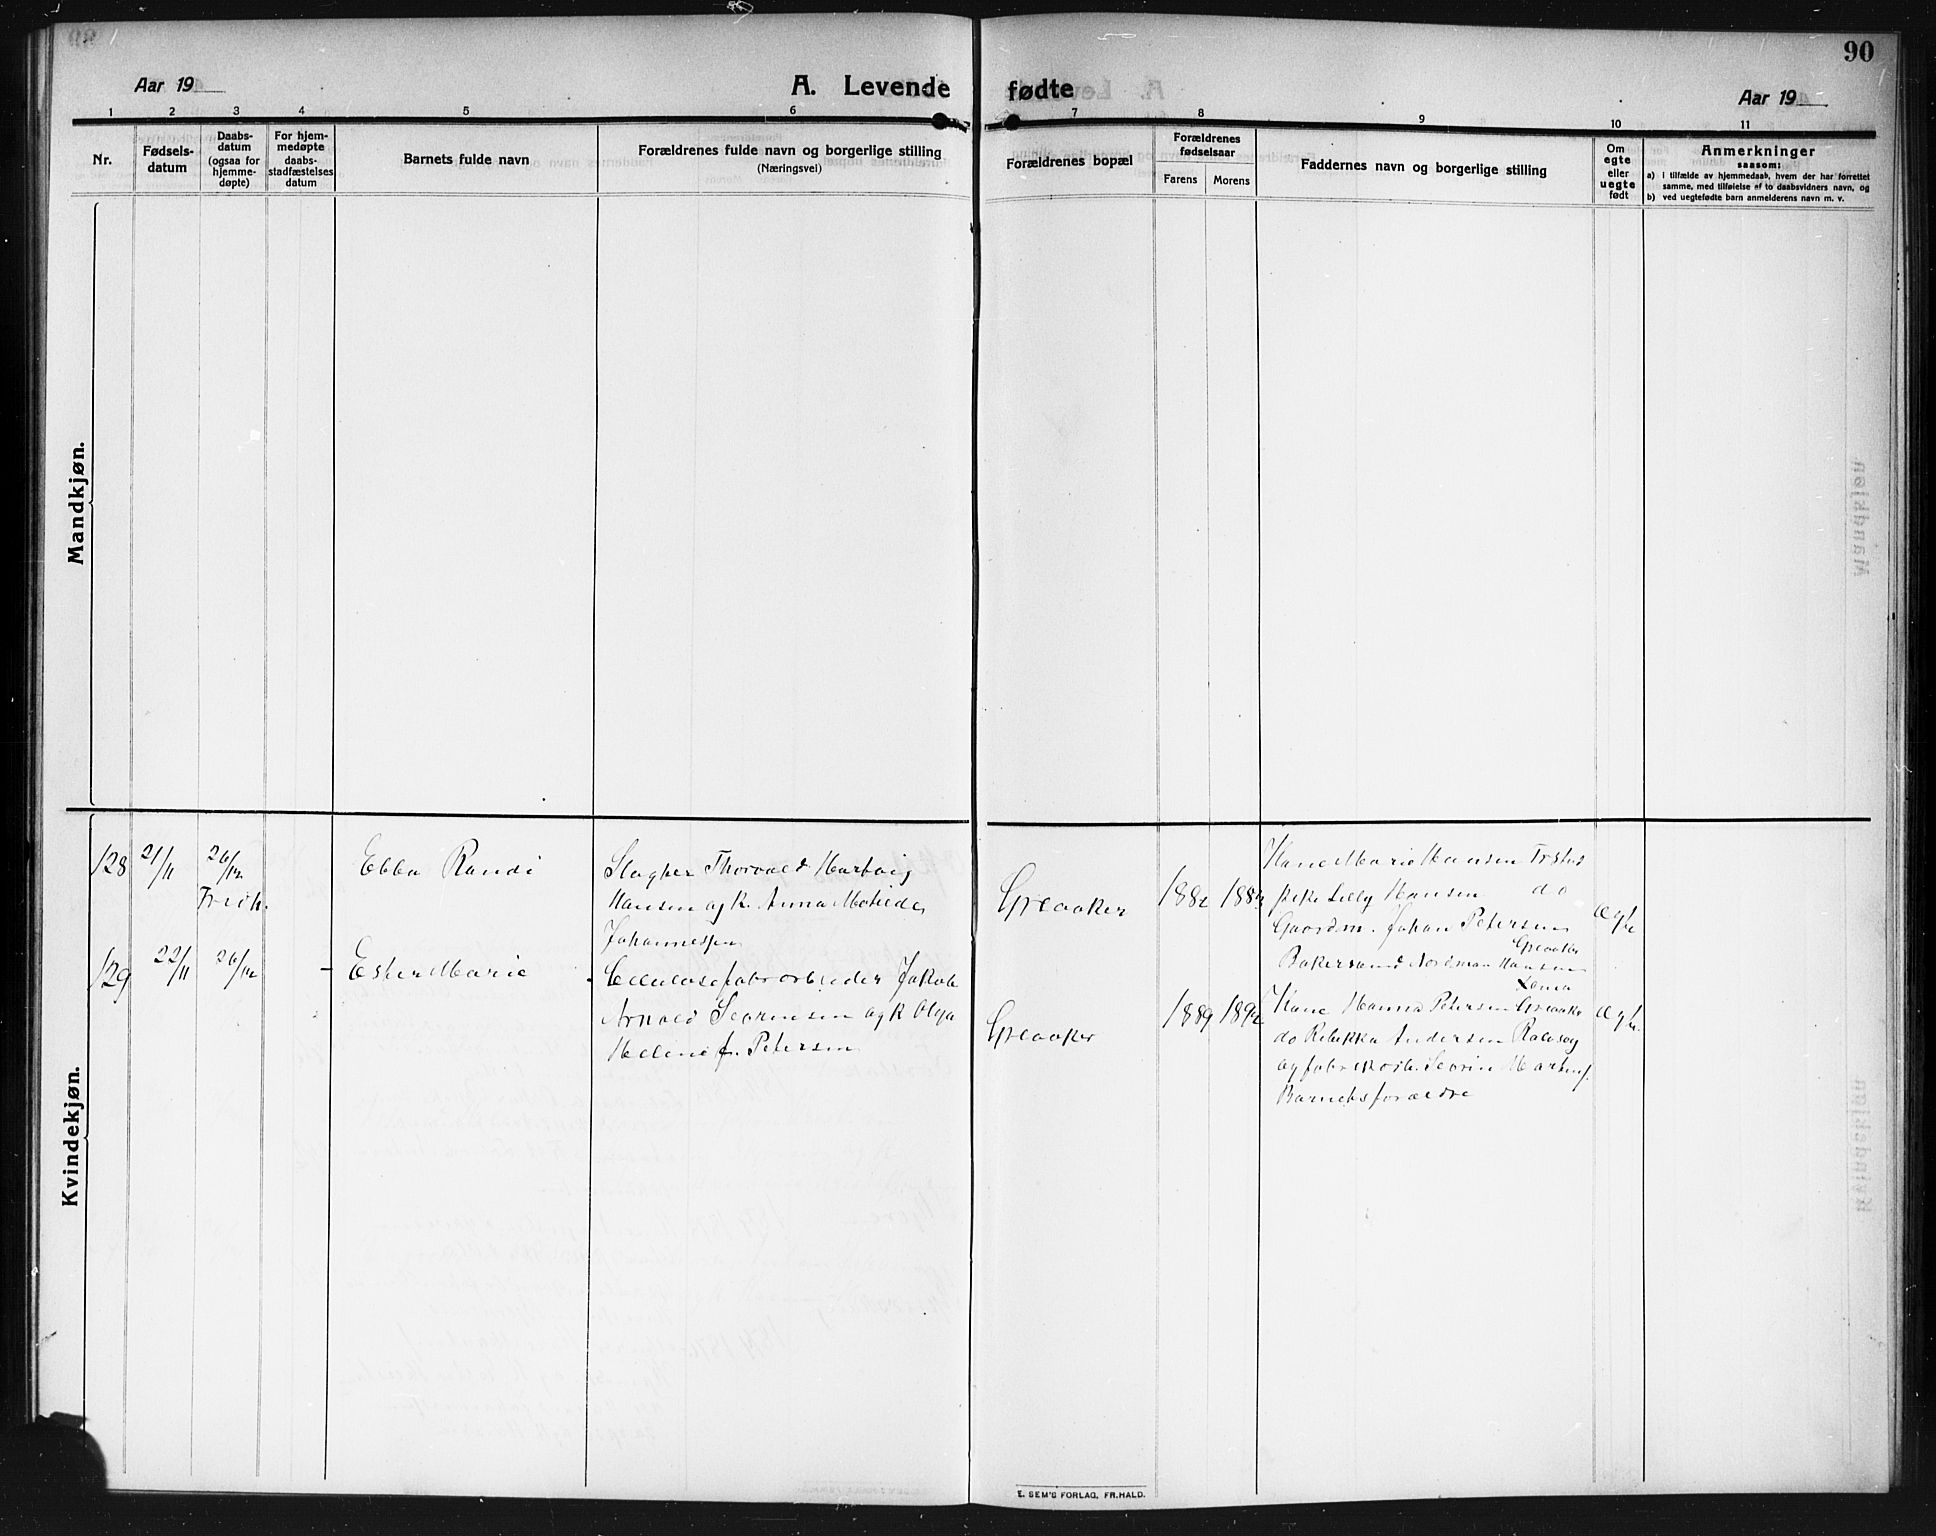 90
Aar 19
A. Levende fødte
Aar 19
1 2 3 4 5 6 7 8 9 10 11
Nr.
Fødsels-
datum
Daabs-
datum
(ogsaa for
hjemme-
døpte)
For hjem-
medøpte
daabs-
stadfæstelses
datum
Barnets fulde navn
Forældrenes fulde navn og borgerlige stilling
(Næringsvei)
Forældrenes bopæl
Forældrenes
fødselsaar
Farens Morens
Faddernes navn og borgerlige stilling
Om
egte
eller
uegte
født
Anmerkninger
saasom:
a) i tilfælde av hjemmedaab, hvem der har forrettet
samme, med tilføielse af to daabsvidners navn, og
b) ved uegtefødte barn anmelderens navn m. v.
Mandkjøn.
Kvindekjøn.
128 21/11 26/12 Ebba Randi
Slagter Thorvald Hartvig
Hansen og k. Anna Matilde
Johannessen
Greaaker
1882
Kone Marie Hansen
Lilly Hansen do
Gaardm. Johan Petersen
Greaaker
Bakersvend Nordman Hansen
129 22/11 26/12 - Ester Marie
Cellulosefabr.arbeider Jakob
Arnold Sørensen og k Olga
Heline f. Petersen
Greaaker
1889 1892
Kone Hanna Petersen Greaaker
do Rebekka Andersen
og fabrikarb.
Barnets forældre
E. SEM'S FORLAG, FR.HALD.